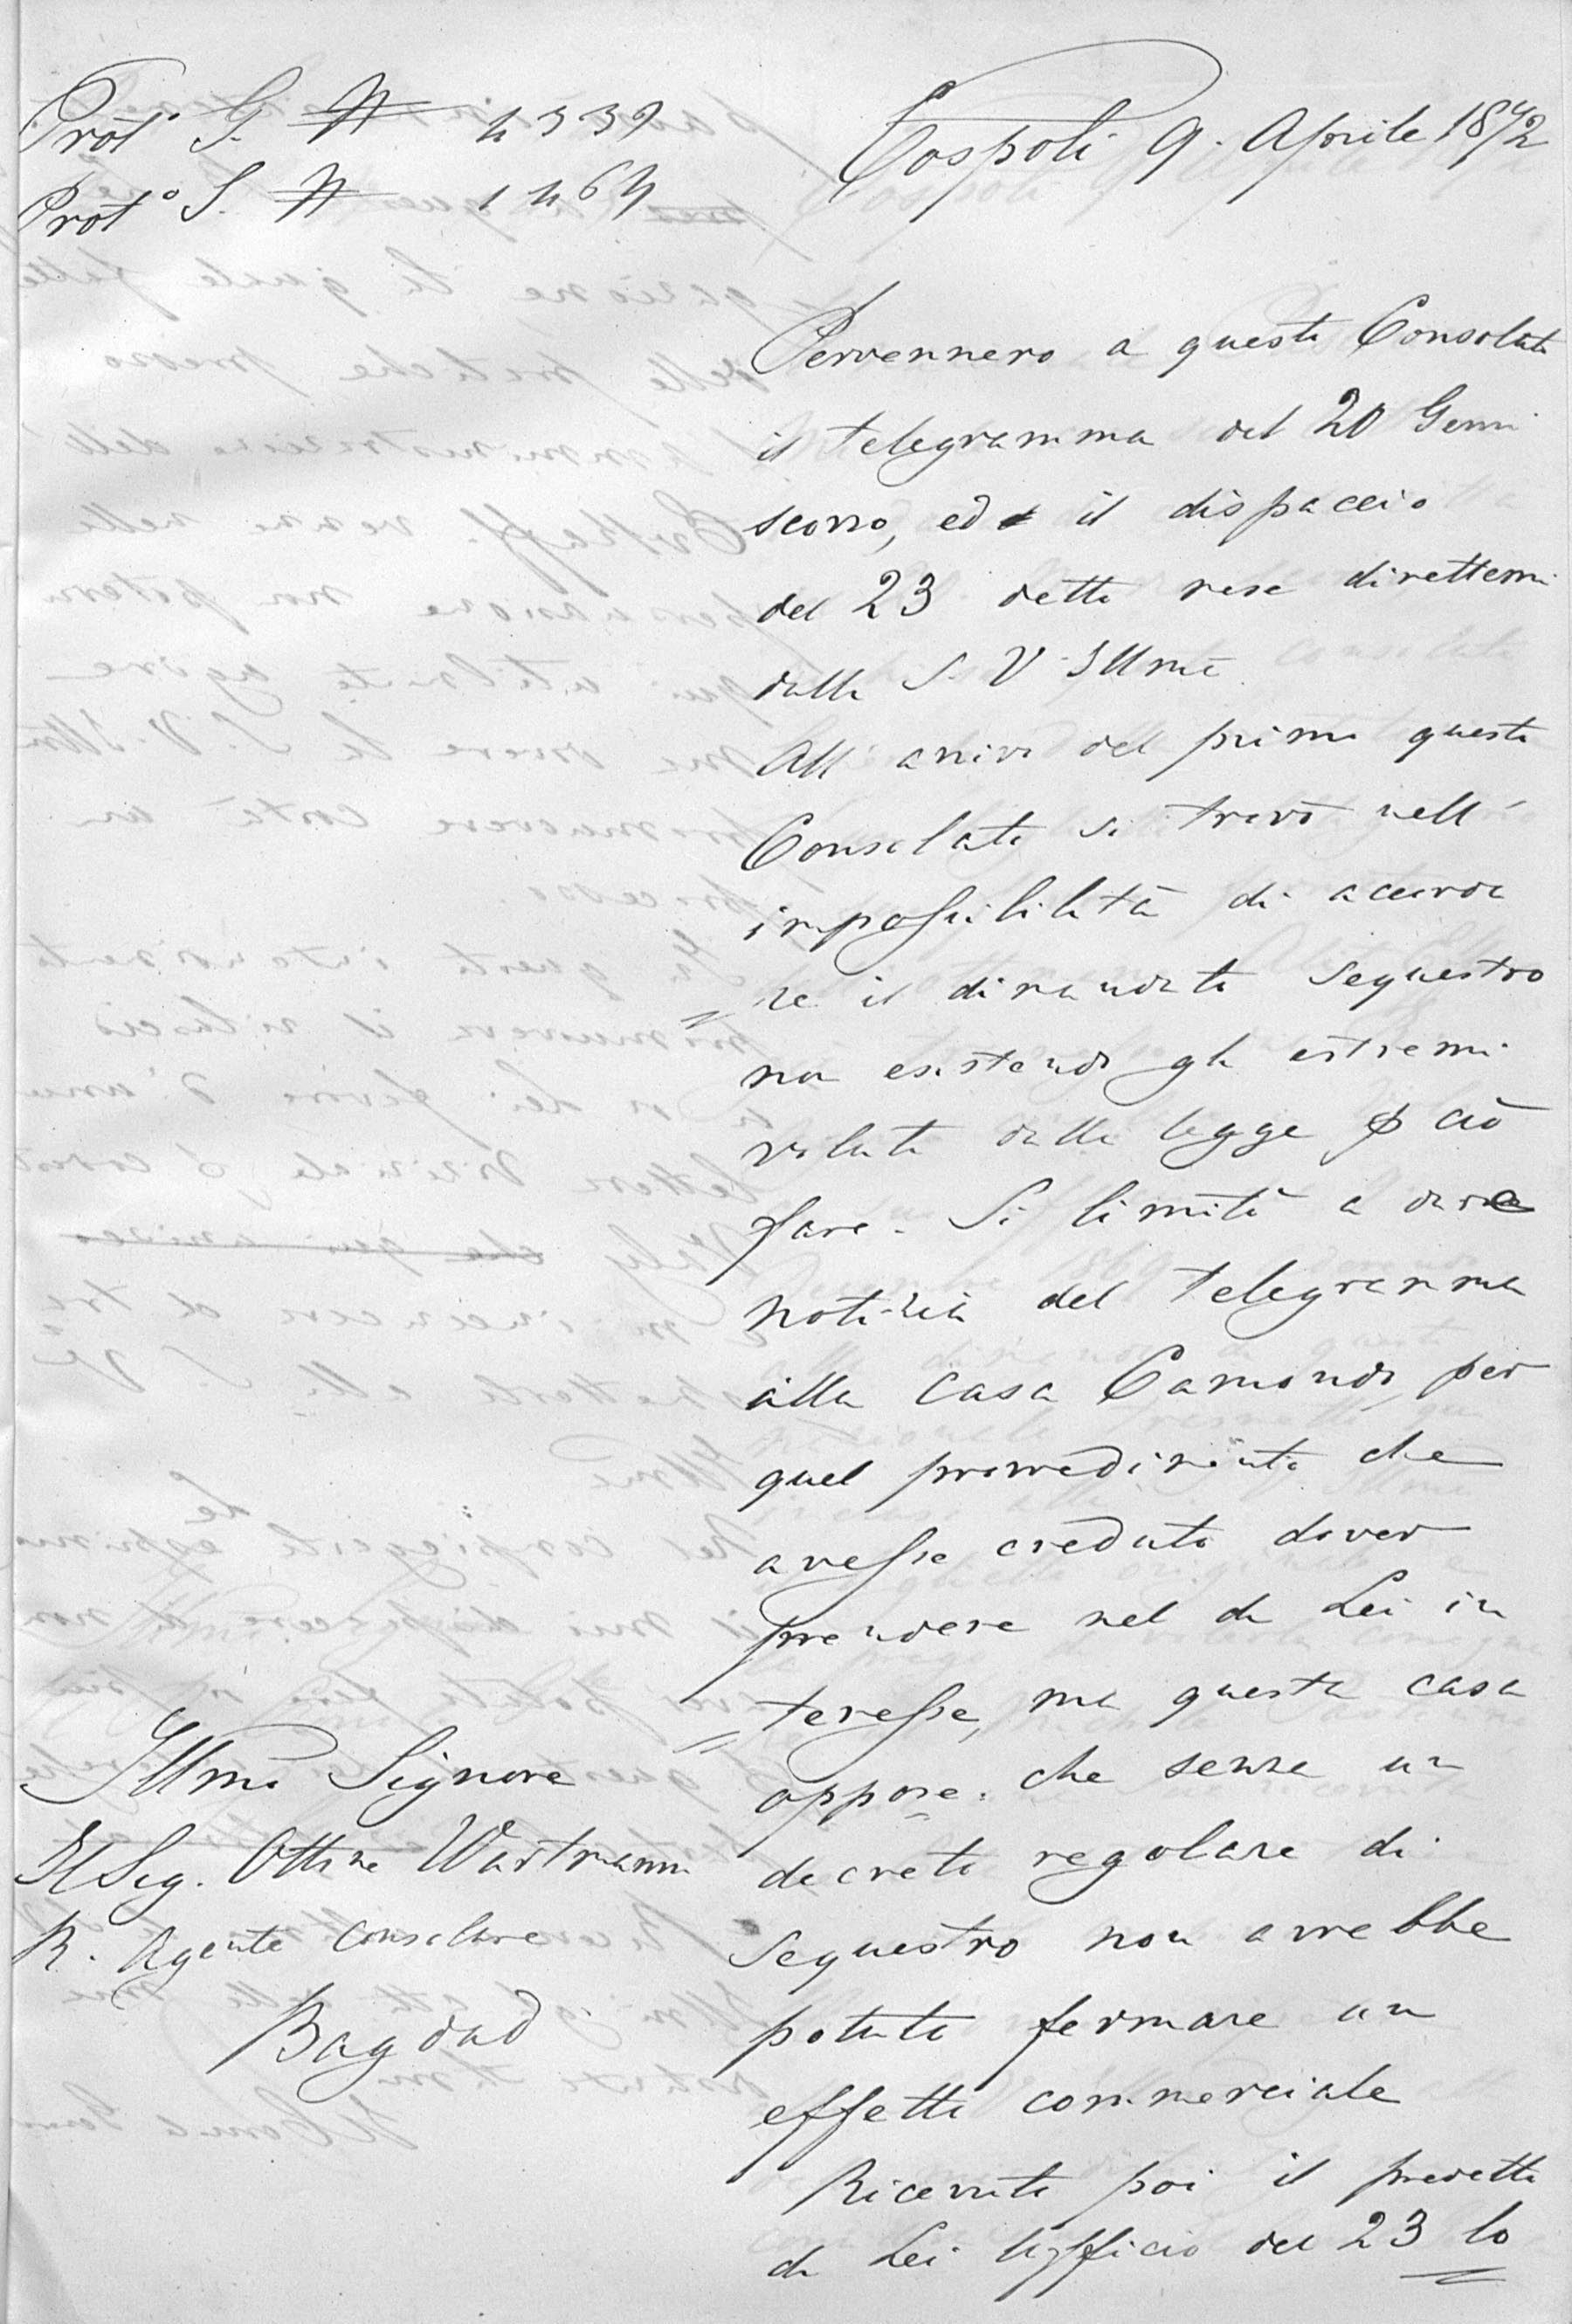 Prot° G. N 4339
Prot° S. N 1464
Cospoli 9. Aprile 1872
Pervennero a questo Consolato
il telegramma del 20 Genn
scorso, ed il dispaccio
del 23 detto rese direttemi
dalla S. V. Illma
All arrivo del primo questo
Consolato si trovò nell'
impossibilità di accorda
re il dimandato sequestro
non esistendo gli estremi
voluti dalla legge p ciò
fare. Si limitò a dare
notizia del telegramma
alla casa Camondo, per
quel provvedimento che
avesse creduto dover
prendere nel di Lei in
teresse, ma questa casa
oppose che senza un
decreto regolare di
sequestro non avrebbe
potuto fermare un
effetto commerciale
Ricevuto poi il predetto
di Lei Ufficio del 23 lo
Illmo Signore
Il Sig. Ottone Wartmann
R. Agente Consolare
Bagdad